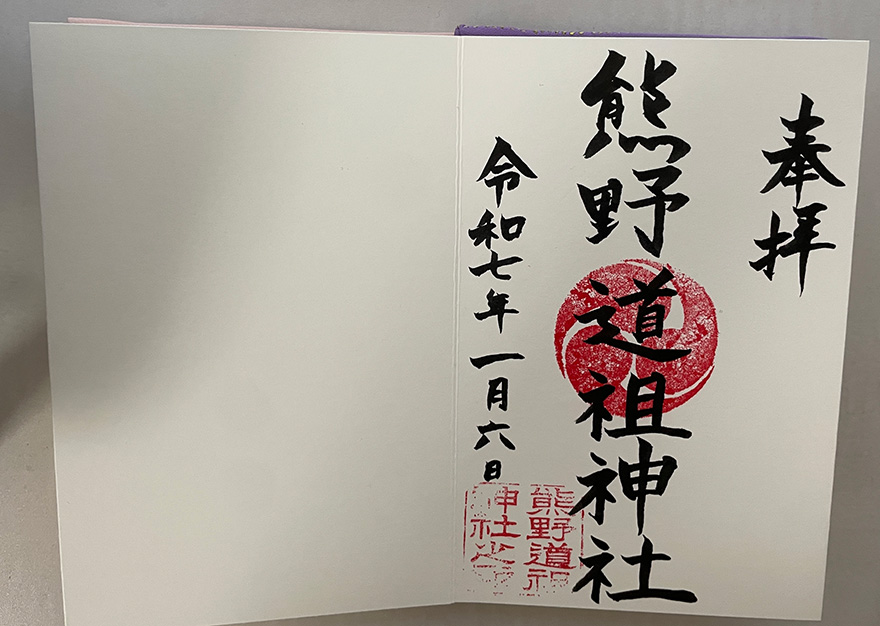 奉拝
熊野道祖神社
令和七年一月六日
熊野道祖
神社之